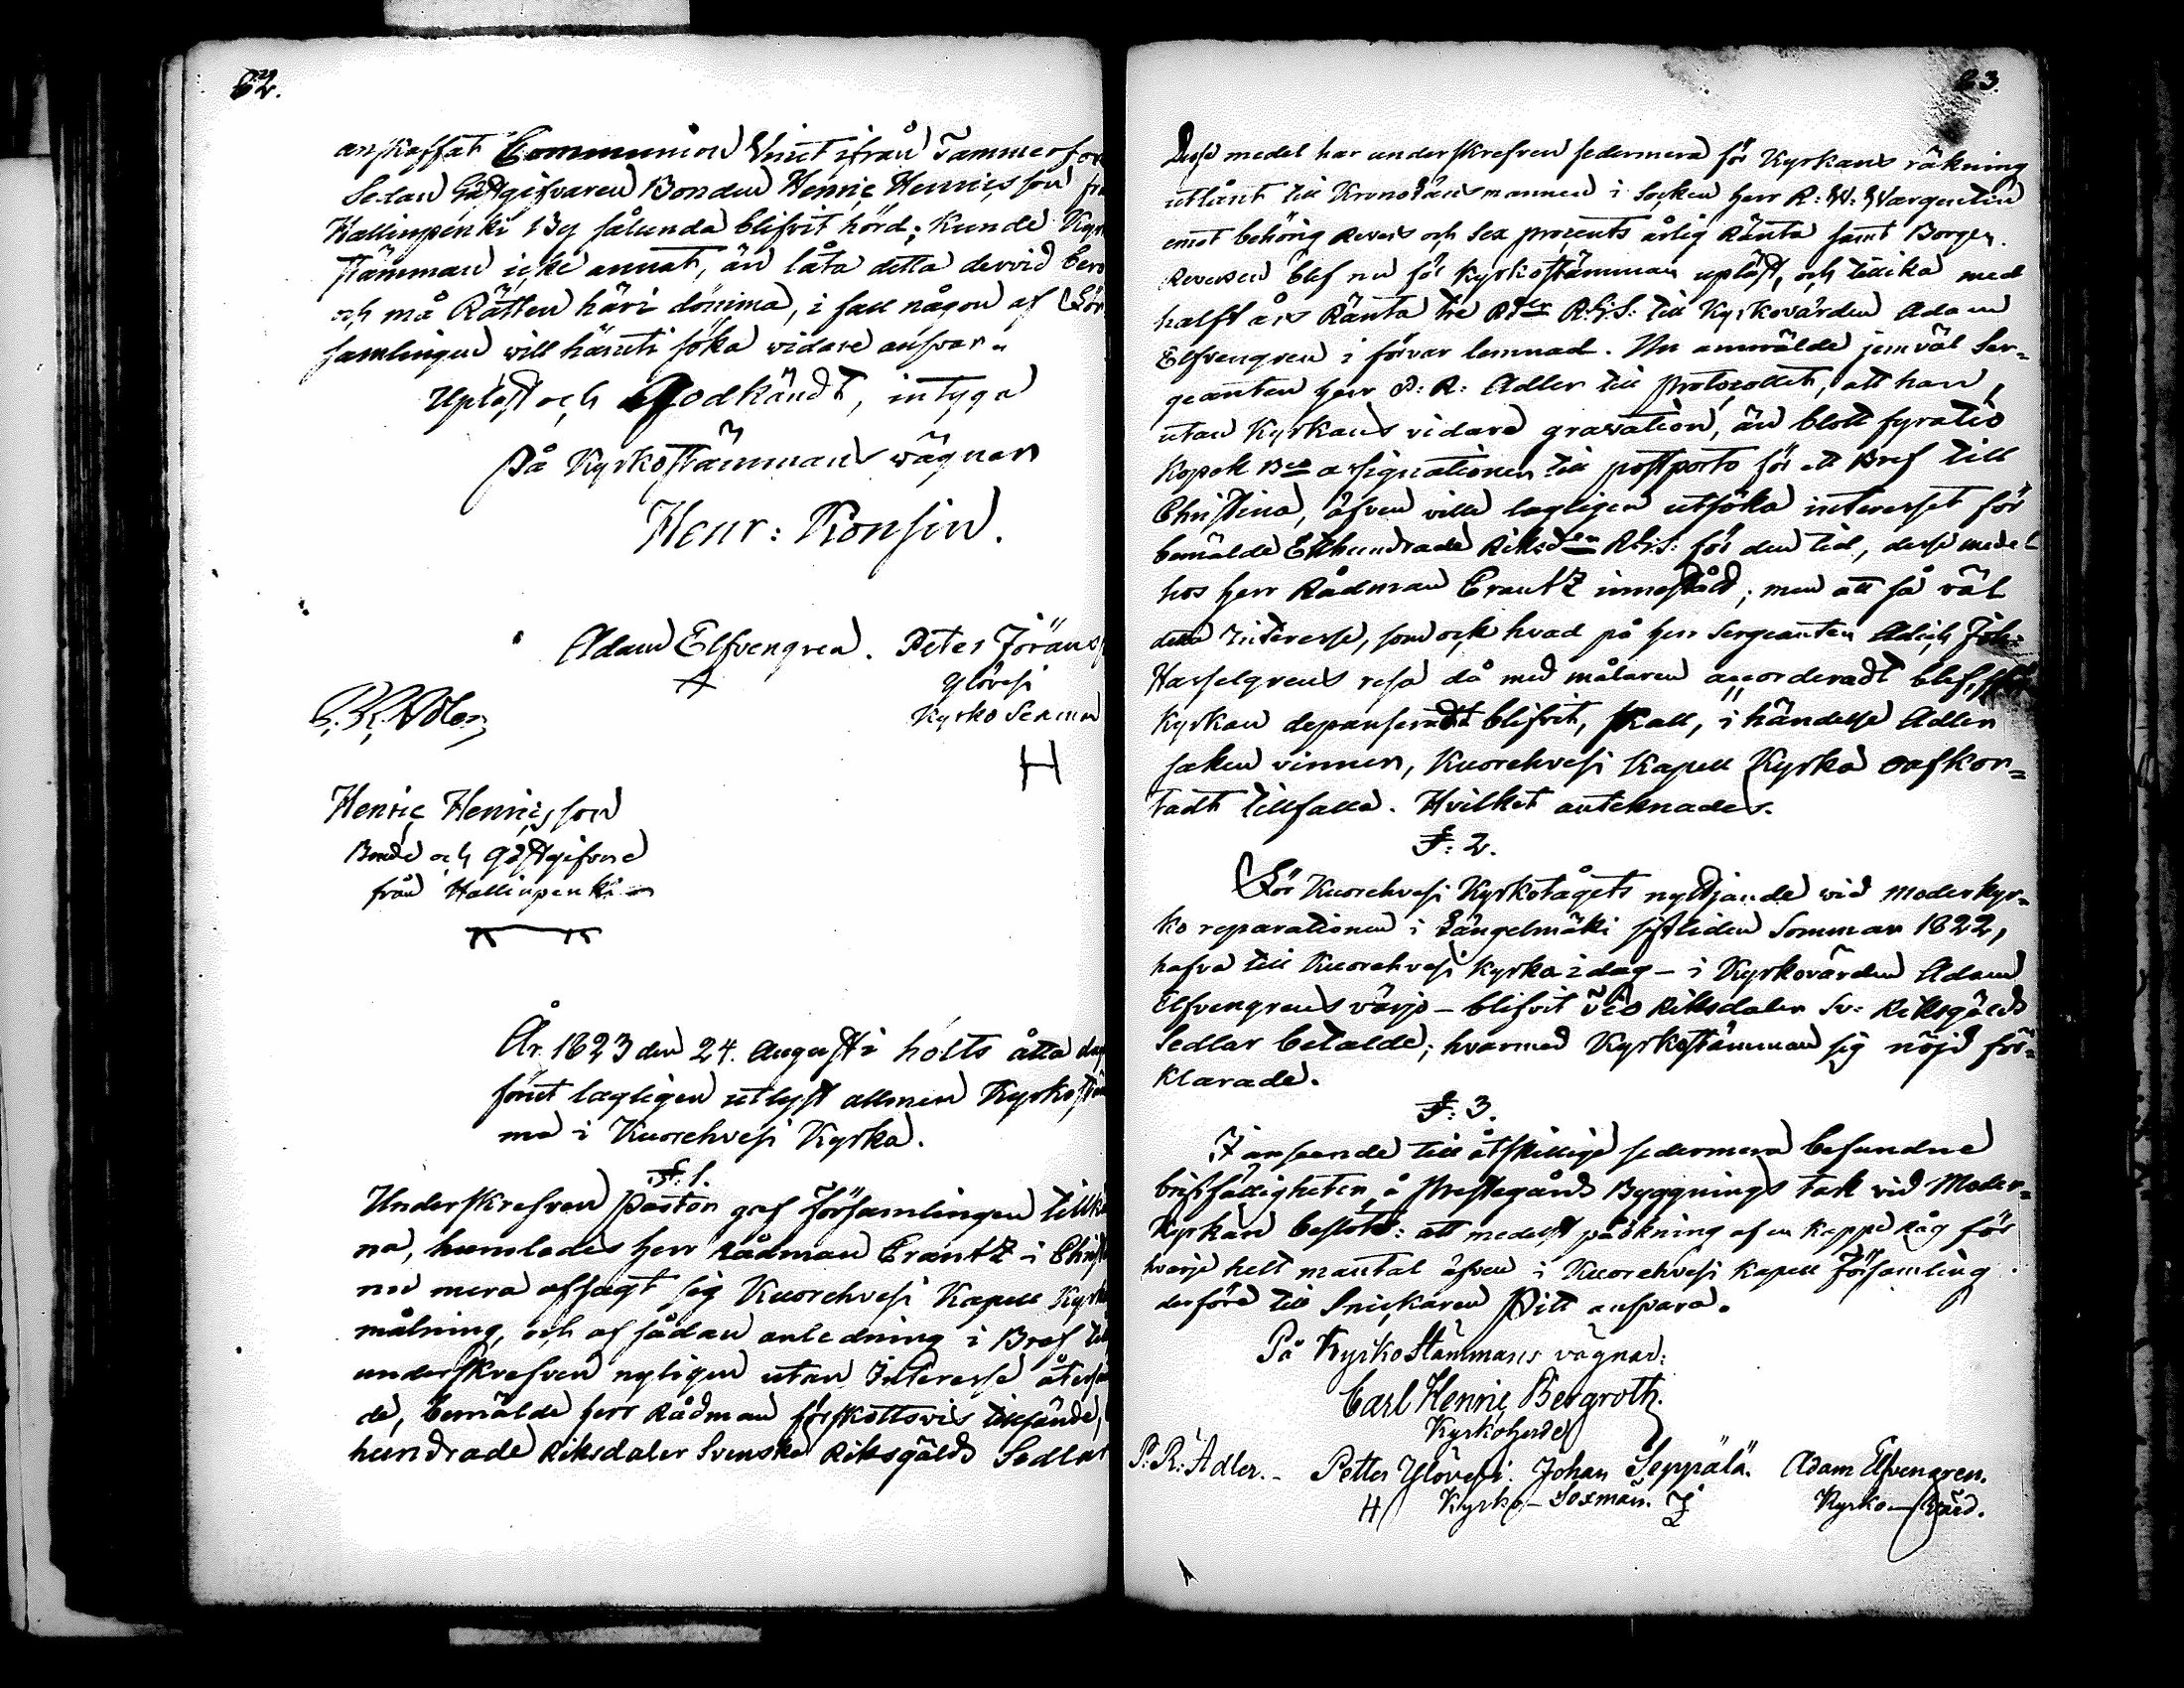 62.
anskaffat Communion Vinet ifrån Tammerfor
Sedan Gästgifvaren Bonden Henric Henricsson frå
Hallinpenki By sålunda blifvit hörd; kunde Kyrk
stämman icke annat, än låta detta dervid bero
och må Rätten häri dömma, i fall någon af För
samlingen will häruti söka vidare ansvar.
Upläst och Godkändt, intyga
På Kyrkostämmans vägnar
Henr: Konsin.
Adam Elfvengren. Peter Jöräns
Ylövesi
Kyrko Sexman
P. R. Adler
H
Henric Henricsson
Bonde och Gästgifvare
från Hallinpenki
År 1823 den 24. Augusti hölts åtta dag
förut lagligen utlyst allmen Kyrkostäm
ma i Kuorehvesi Kyrka.
§. 1.
Underskrefven Pastor gaf Församlingen tillkä
na, huruledes herr Rådman Crantz i Christi
nu mera afsagt sig Kuorehvesi Kapell Kyrk
målning, och af sådan anledning i Bref till
underskrefven nyligen utan Interesse återsän
de, bemälde herr Rådman förskottsvis tillsände,
hundrade Riksdaler Svenska Riksgälds Sedlar
63.
Desse medel har underskrefven sedermera för Kyrkans räkning
utlånt till Kronolänsmannen i Socken herr R: W: Wargentin
emot behörig Revers och Sex procents årlig Ränta samt Borgen.
Reversen blef nu för Kyrkostämman upläst, och tillika med
halft års Ränta tre Rdr R.G.S. till Kyrkovärden Adam
Elfvengren i förvar lemnad. Nu anmälde jemväl Ser=
geanten herr P: R: Adler till Protocollet, att han,
utan Kyrkans vidare gravation, än blott fyratio
Kopek Bco assignationer till postporto för ett Bref till
Christina, äfven ville lagligen utsöka interesset för
bemälde Etthundrade Riksdlr R.G.S. för den tid, desse medel
hos herr Rådman Crantz innestådt; men att så väl
detta Interesse, som ock hvad på herr Sergeanten Adich Joh:
Hasselgrens resa då med målaren accorderadt blef, för
Kyrkan depanseradt blifvit, skall, i händelse Adler
saken vinner, Kuorehvesi Kapell Kyrka oafkor=
tadt tillfalla. Hvilket antecknades.
§: 2.
För Kuorehvesi Kyrkotågets nyttjande vid Moderkyr=
ko reparationen i Längelmäki sistliden Sommar 1822,
hafva till Kuorehvesi Kyrka i dag – i Kyrkovärden Adam
Elfvengrens värjo – blifvit tio Riksdaler Sv: Riksgälds
Sedlar betalde; hvarmed Kyrkostämman sig nöjd för=
klarade.
§: 3.
I anseende till åtskillige sedermera befundne
bristfälligheter å Prestegårds Byggnings tak vid Moder=
Kyrkan beslöts: att medelst påökning af en kappe Råg för
hvarje helt mantal äfven i Kuorehvesi Kapell Församling
derföre till Snickaren Pitt ansvara.
På Kyrko Stämmans vägnar:
Carl Henric Bergroth.
Kyrkoherde
P: R: Adler. – Petter Ylövesi. Johan Seppälä. Adam Elfvengren.
H Kyrko – Sexmän. Kyrko – Värd.